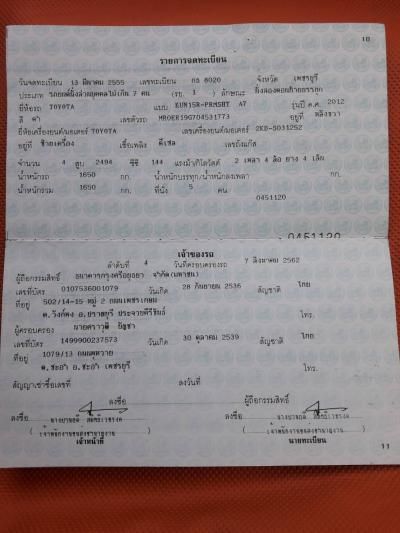 10
รายการจดทะเบียน
วันจดทะเบียน 13 มีนาคม 2555 เลขทะเบียน กร 8020 จังหวัด เพชรบุรี
ประเภท รถยนต์นั่งส่วนบุคคลไม่เกิน 7 คน (รย. 1 ) ลักษณะ นั่งสองตอนท้ายบรรทุก
ยี่ห้อรถ TOYOTA แบบ KUN15R-PRMSHY A7 รุ่นปี ค.ศ. 2012
สี ดำ เลขตัวรถ MROER19G704531773 อยู่ที่
ยี่ห้อเครื่องยนต์/มอเตอร์ TOYOTA เลขเครื่องยนต์/มอเตอร์ 2KD-S031252
อยู่ที่ ซ้ายเครื่อง เชื้อเพลิง ดีเซล เลขถังแก๊ส
จำนวน 4 สูบ 2494 ซีซี 144 แรงม้า/กิโลวัตต์ 2 เพลา 4 ล้อ ยาง 4 เส้น
น้ำหนักรถ 1650 กก. น้ำหนักบรรทุก/น้ำหนักลงเพลา กก.
น้ำหนักรวม 1650 กก. ที่นั่ง 5 คน
0451120
0451120
เจ้าของรถ
ลำดับที่ 4 วันที่ครอบครองรถ 7 สิงหาคม 2562
ผู้ถือกรรมสิทธิ์ ธนาคารกรุงศรีอยุธยา จำกัด (มหาชน)
เลขที่บัตร 0107536001079 วันเกิด 28 กันยายน 2536 สัญชาติ ไทย
ที่อยู่ 502/14-15 หมู่ 2 ถนนเพชรเกษม
ต.วังก์พง อ.ปราณบุรี ประจวบคีรีขันธ์ โทร.
ผู้ครอบครอง
เลขที่บัตร 1499900237573 วันเกิด 30 ตุลาคม 2539 สัญชาติ ไทย
ที่อยู่ 1079/13
ต.ชะอำ อ.ชะอำ เพชรบุรี โทร.
สัญญาเช่าซื้อเลขที่ ลงวันที่ ผู้ถือกรรมสิทธิ์
ลงชื่อ ลงชื่อ
(เจ้าพนักงานขนส่งชำนาญงาน) (เจ้าพนักงานขนส่งชำนาญงาน)
เจ้าหน้าที่ นายทะเบียน
11